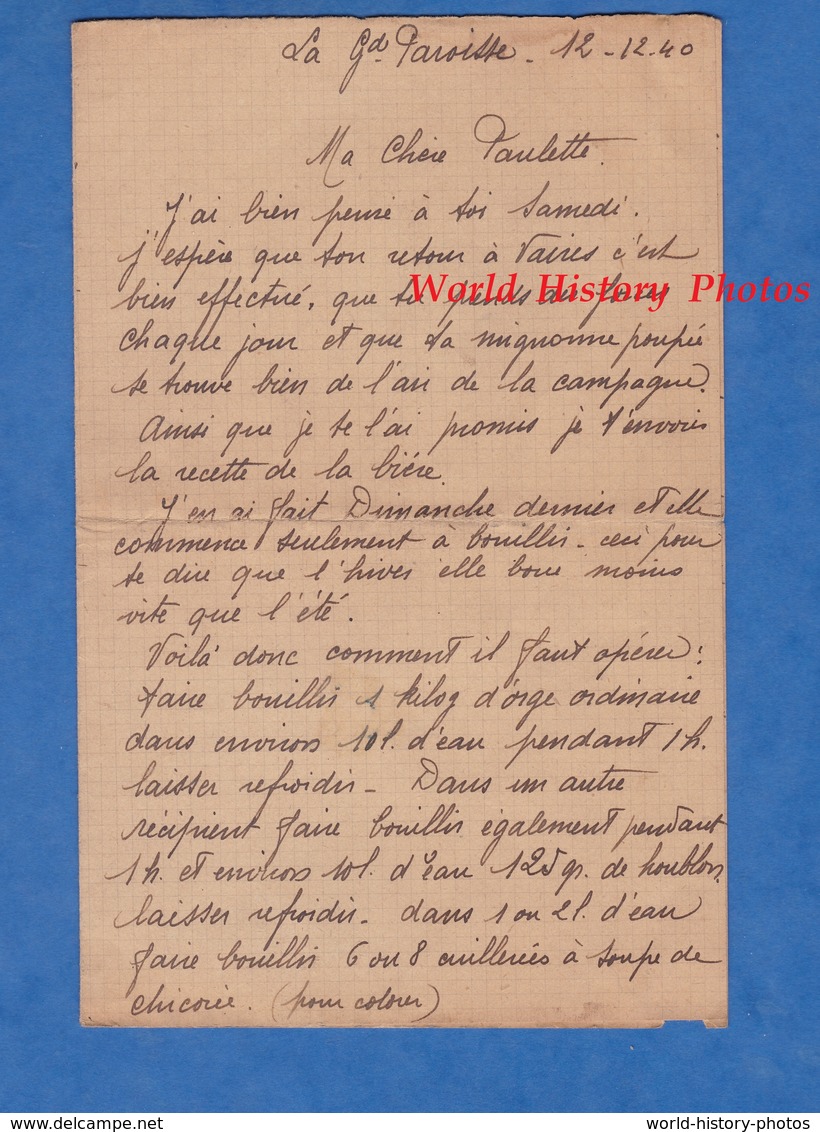 La Gde Paroisse - 12-12-40
Ma Chère Paulette.
J'ai bien pensé à toi Samedi.
J'espère que ton retour à Vaires c'est
bien effectué, que tu prends des forces
chaque jour et que ta mignonne poupée
se trouve bien de l'air de la campagne.
Ainsi que je te l'ai promis je t'envoies
la recette de la bière.
J'en ai fait Dimanche dernier et elle
commence seulement à bouillir - ceci pour
te dire que l'hiver elle boue moins
vite que l'été.
Voilà donc comment il faut opérer :
faire bouillir 1 kilog d'orge ordinaire
dans environ 10 l. d'eau pendant 1 h.
laisser refroidir - Dans un autre
récipient faire bouillir également pendant
1 h. et environ 10 l. d'eau 125 gr. de houblon,
laisser refroidir - dans 1 ou 2 l. d'eau
faire bouillir 6 ou 8 cuillerées à soupe de
chicorée. (pour colorer)
World History Photos
delcampe.net
world-history-photos